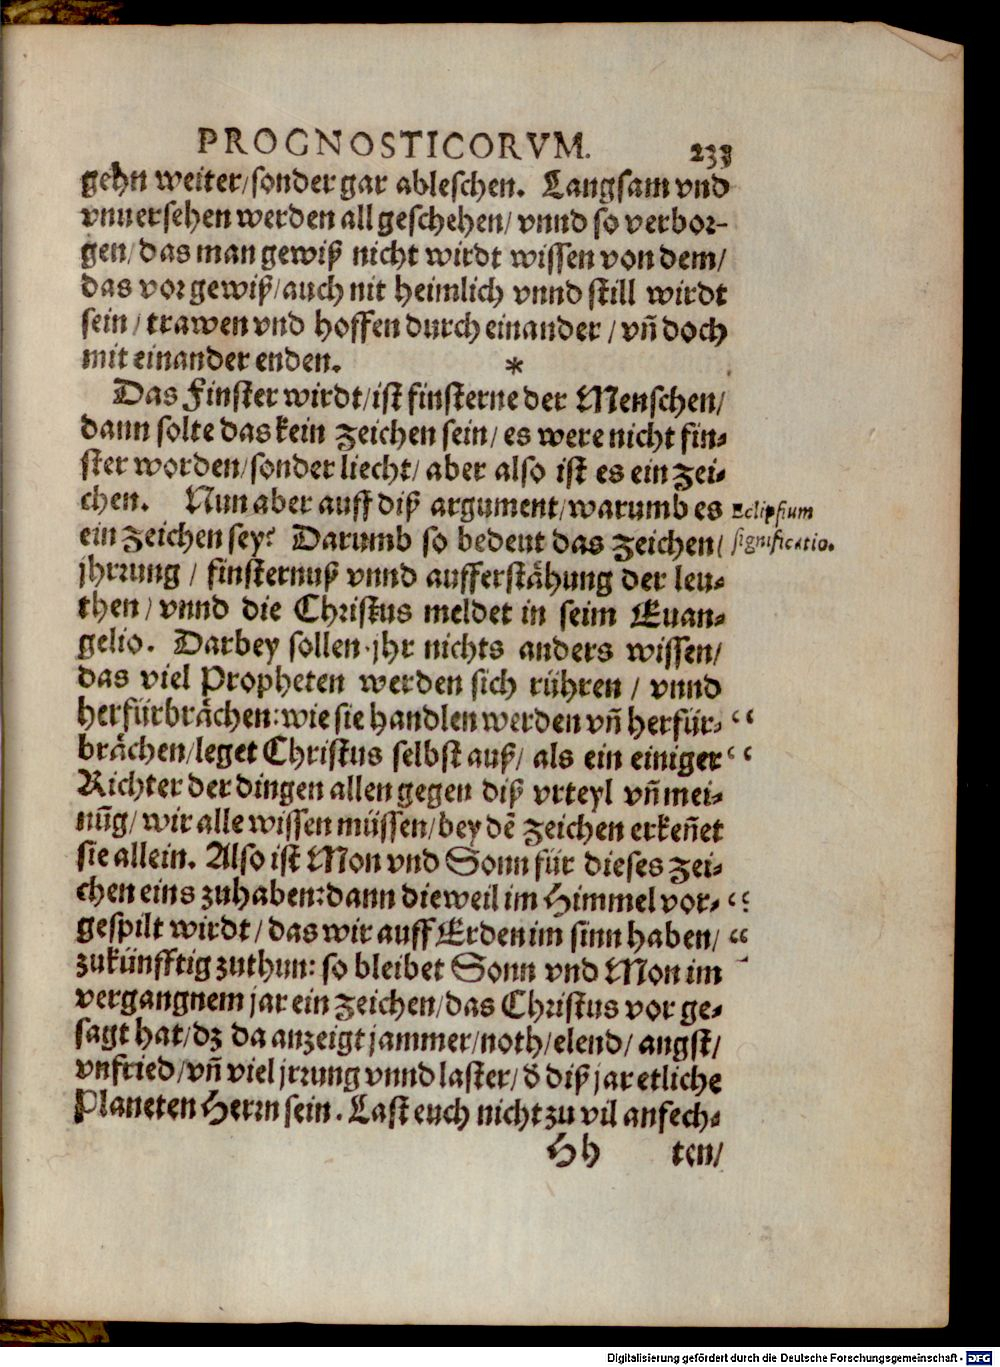 PROGNOSTICORVM. 233
gehn weiter/sonder gar ableschen. Langsam vnd
vnuersehen werden all geschehen/ vnnd so verbor-
gen/das man gewiß nicht wirdt wissen von dem/
das vor gewiß/auch nit heimlich vnnd still wirdt
sein/trawen vnd hoffen durch einander/vñ doch
mit einander enden. *
Das Finster wirdt/ist finsterne der Menschen/
dann solte das kein zeichen sein/ es were nicht fin-
ster worden/sonder liecht/ aber also ist es ein zei-
chen. Nun aber auff diß argument/warumb es
Eclipsium
ein zeichen sey? Darumb so bedeut das zeichen/
significatio.
jhrrung / finsternuß vnnd aufferstähung der leu-
then/ vnnd die Christus meldet in seim Euan-
gelio. Darbey sollen jhr nichts anders wissen/
das viel Propheten werden sich rühren / vnnd
herfürbrächen:wie sie handlen werden vñ herfür-
brächen/leget Christus selbst auß/ als ein einiger
Richter der dingen allen gegen diß vrteyl vñ mei-
nũg/wir alle wissen müssen/bey dē zeichen erkeñet
sie allein. Also ist Mon vnd Sonn für dieses zei-
chen eins zuhaben:dann dieweil im Himmel vor-
gespilt wirdt/das wir auff Erden im sinn haben/
zukünfftig zuthun: so bleibet Sonn vnd Mon im
vergangnem jar ein zeichen/das Christus vor ge-
sagt hat/dz da anzeigt jammer/noth/elend/ angst/
vnfried/vñ viel jrrung vnnd laster/ð diß jar etliche
Planeten Herrn sein. Last euch nicht zu vil anfech-
Hh ten/
Digitalisierung gefördert durch die Deutsche Forschungsgemeinschaft - DFG